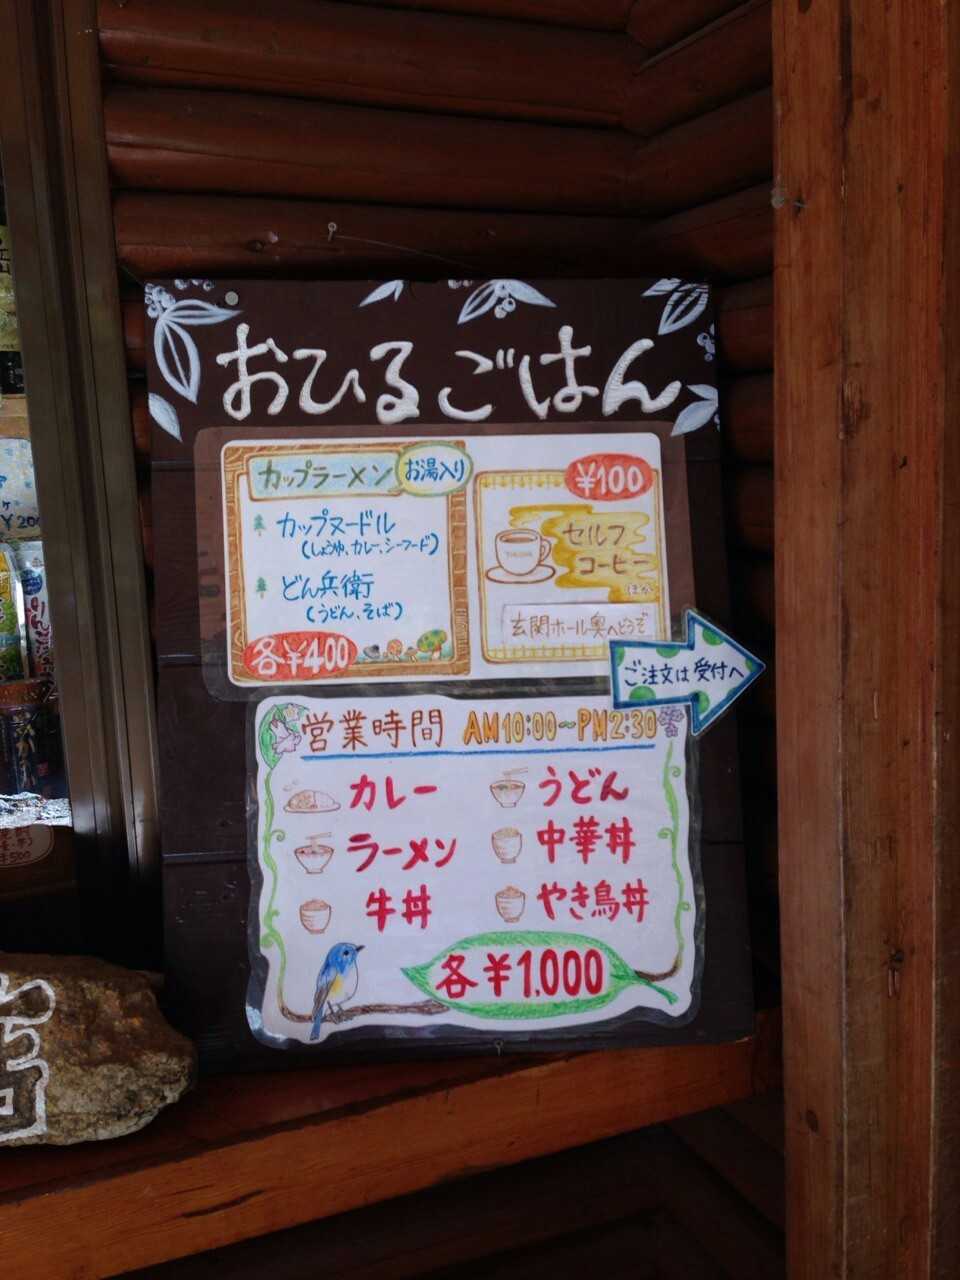 おひるごはん
カップラーメン お湯入り
カップヌードル
(しょうゆ、カレー、シーフード)
どん兵衛
(うどん、そば)
各¥400
¥100
セルフ
コーヒー
ほか
玄関ホール奥へどうぞ
ご注文は受付へ
営業時間 AM10:00～PM2:30
カレー
うどん
ラーメン
中華丼
牛丼
やき鳥丼
各¥1,000